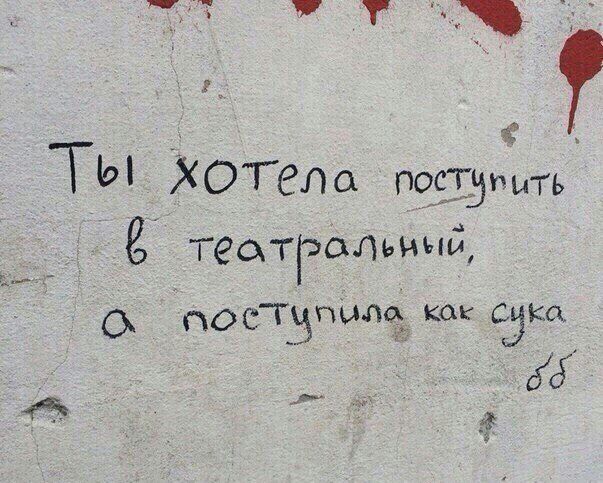 Ты хотела поступить
в театральный,
а поступила как сука
бб